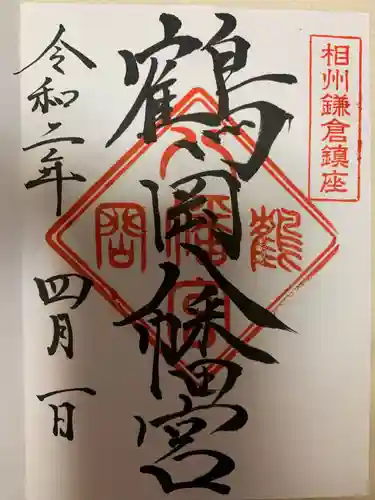 相州鎌倉鎮座
鶴岡八幡宮
鶴岡八幡宮
令和二年四月一日